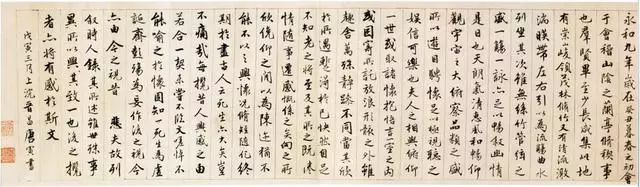 永和九年歲在癸丑暮春之初會
于會稽山陰之蘭亭脩稧事
也羣賢畢至少長咸集此地
有崇峻領茂林脩竹又有清流激
湍暎帶左右引以為流觴曲水
列坐其次雖無絲竹管絃之
盛一觴一詠亦足以暢敘幽情
是日也天朗氣清惠風和暢仰
觀宇宙之大俯察品類之盛
所以遊目騁懷足以極視聽之
娛信可樂也夫人之相與俯仰
一世或取諸懷抱悟言一室之內
或因寄所託放浪形骸之外雖
趣舍萬殊靜躁不同當其欣
於所遇蹔得於己快然自足
不知老之將至及其所之既惓
情隨事遷感慨係之矣向之所
欣俛仰之間以為陳迹猶不
能不以之興懷況脩短隨化終
期於盡古人云死生亦大矣豈
不痛哉每攬昔人興感之由
若合一契未嘗不臨文嗟悼不
能喻之於懷固知一死生為虛
誕齊彭殤為妄作後之視今
亦由今之視昔 悲夫故列
敘時人錄其所述雖世殊事
異所以興其致一也後之攬
者亦將有感於斯文
戊寅三月上浣晉昌唐寅書